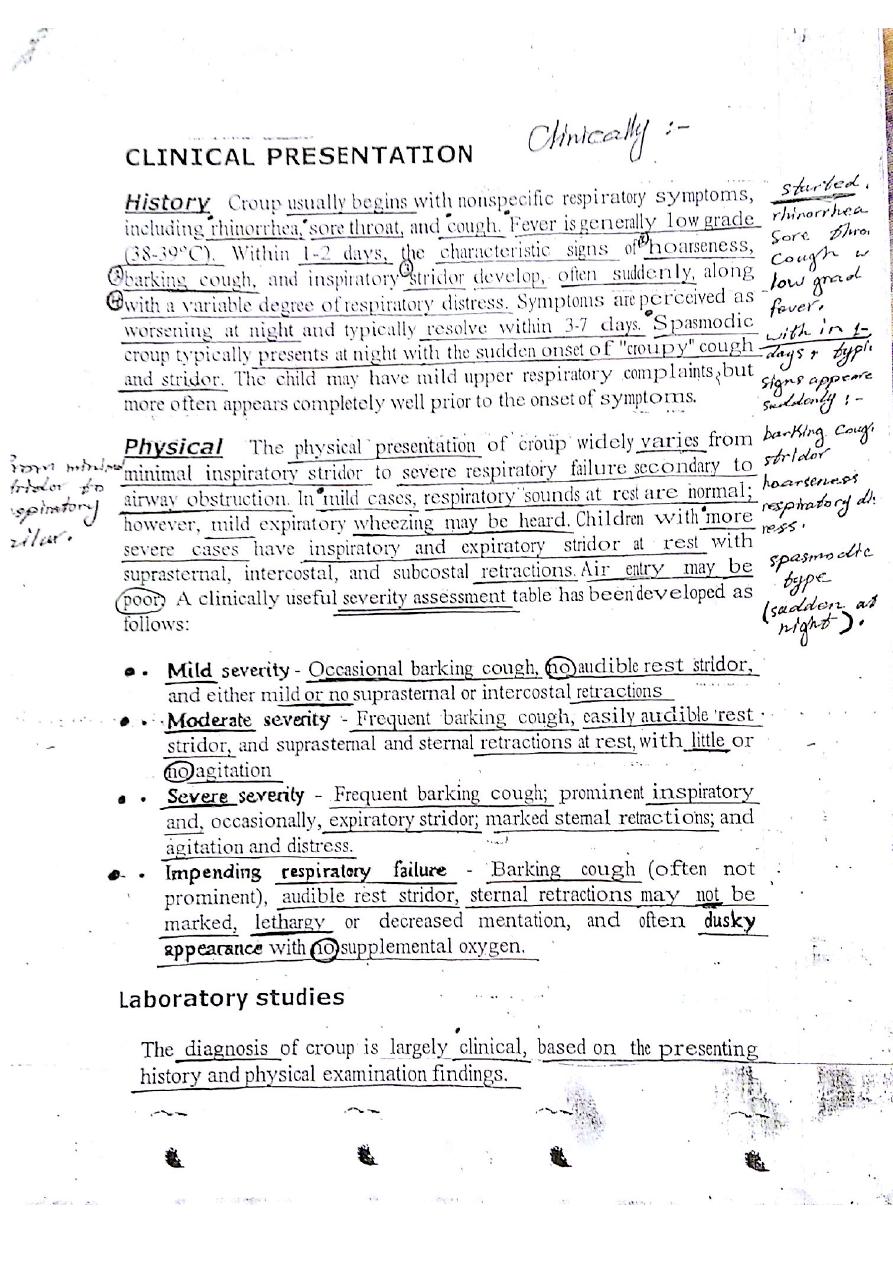 Clinically :-
CLINICAL PRESENTATION
History Croup usually begins with nonspecific respiratory symptoms,
including rhinorrhea, sore throat, and cough. Fever is generally low grade
(38-39°C). Within 1-2 days, the characteristic signs of hoarseness,
barking cough, and inspiratory stridor develop, often suddenly, along
with a variable degree of respiratory distress. Symptoms are perceived as
worsening at night and typically resolve within 3-7 days. Spasmodic
croup typically presents at night with the sudden onset of "croupy" cough
and stridor. The child may have mild upper respiratory complaints, but
more often appears completely well prior to the onset of symptoms.
started
rhinorrhea
Sore thro
Cough
low grad
fever.
with in 1-
days
signs appeare
suddenly :-
barking coug
stridor
hoarseness
respiratory
ress.
spasmodic
type
(sudden at
night).
Physical The physical presentation of croup widely varies from
minimal inspiratory stridor to severe respiratory failure secondary to
airway obstruction. In mild cases, respiratory sounds at rest are normal;
however, mild expiratory wheezing may be heard. Children with more
severe cases have inspiratory and expiratory stridor at rest with
suprasternal, intercostal, and subcostal retractions. Air entry may be
poor. A clinically useful severity assessment table has been developed as
follows:
tridor to
spiratory
• Mild severity - Occasional barking cough, no audible rest stridor,
and either mild or no suprasternal or intercostal retractions
• Moderate severity - Frequent barking cough, easily audible rest
stridor, and suprasternal and sternal retractions at rest, with little or
no agitation
• Severe severity - Frequent barking cough; prominent inspiratory
and, occasionally, expiratory stridor; marked sternal retractions; and
agitation and distress.
• Impending respiratory failure - Barking cough (often not
prominent), audible rest stridor, sternal retractions may not be
marked, lethargy or decreased mentation, and often dusky
appearance with no supplemental oxygen.
Laboratory studies
The diagnosis of croup is largely clinical, based on the presenting
history and physical examination findings.